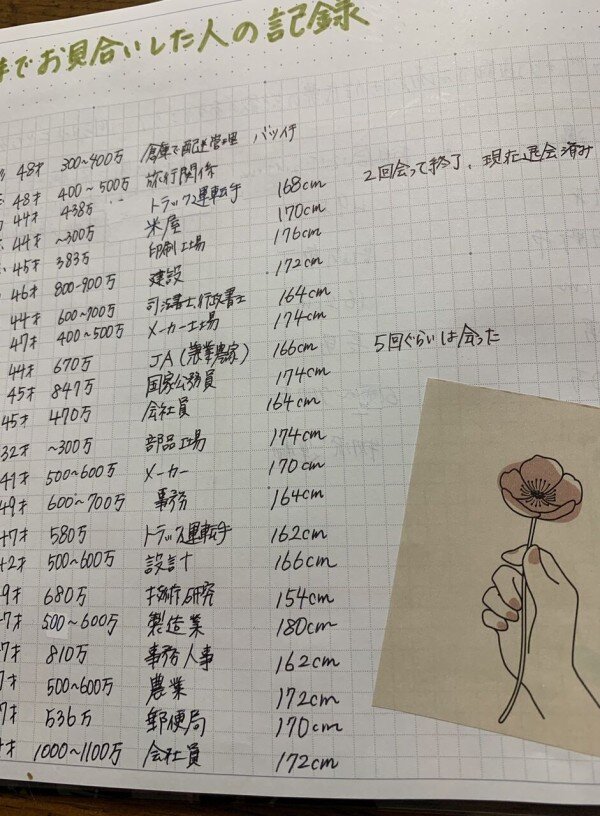 でお見合いした人の記録
48才 300~400万 倉庫で配送管理 バツイチ
48才 400~500万 旅行関係 2回会って終了、現在退会済み
44才 438万 トラック運転手 168cm
44才 ~300万 米屋 170cm
45才 383万 印刷工場 176cm
46才 800-900万 建設 172cm
44才 600~700万 司法書士、行政書士 164cm
47才 400~500万 メーカー工場 174cm
44才 670万 JA(兼業農家) 166cm 5回ぐらいは会った
45才 847万 国家公務員 174cm
45才 470万 会社員 164cm
32才 ~300万 部品工場 174cm
41才 500~600万 メーカー 170cm
49才 600~700万 事務 164cm
47才 580万 トラック運転手 162cm
42才 500~600万 設計 166cm
9才 680万 技術研究 154cm
7才 500~600万 製造業 180cm
7才 810万 事務人事 162cm
7才 500~600万 農業 172cm
7才 536万 郵便局 170cm
才 1000~1100万 会社員 172cm